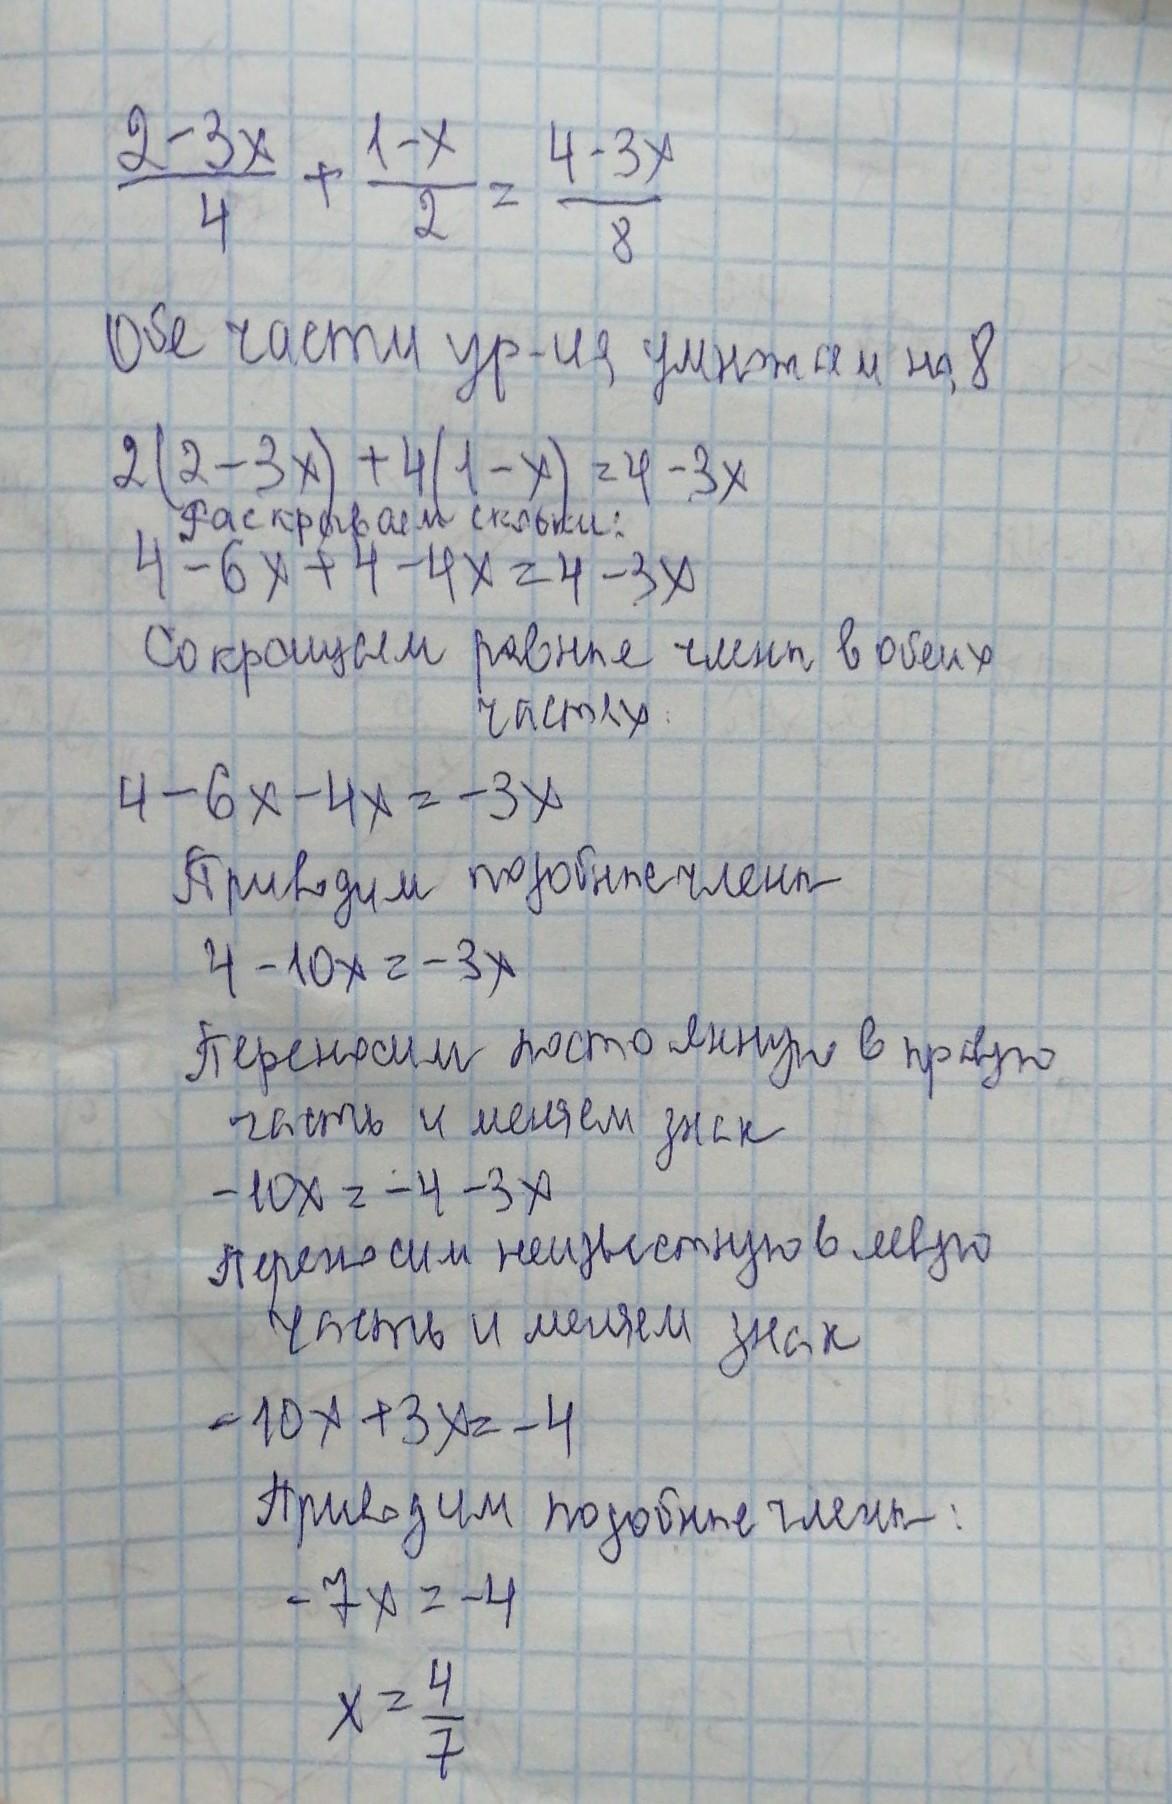 (2-3x)/4 + (1-x)/2 = (4-3x)/8
Обе части ур-ия умножаем на 8
2(2-3x) + 4(1-x) = 4-3x
Раскрываем скобки:
4-6x+4-4x=4-3x
Сокращаем равные члены в обеих
частях:
4-6x-4x=-3x
Приводим подобные члены
4-10x=-3x
Переносим постоянную в правую
часть и меняем знак
-10x=-4-3x
Переносим неизвестную в левую
часть и меняем знак
-10x+3x=-4
Приводим подобные члены:
-7x=-4
x=4/7